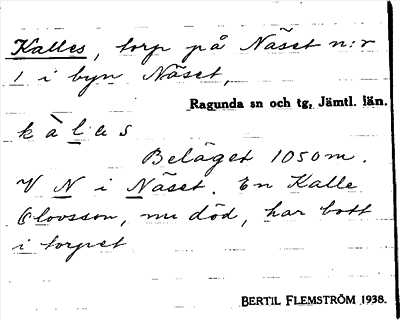 Kalles, torp på Näset n:r
1 i byn Näset,
Ragunda sn och tg, Jämtl. län.
kàlas
Beläget 1050 m.
V N i Näset. En Kalle
Olovsson, nu död, har bott
i torpet
BERTIL FLEMSTRÖM 1938.